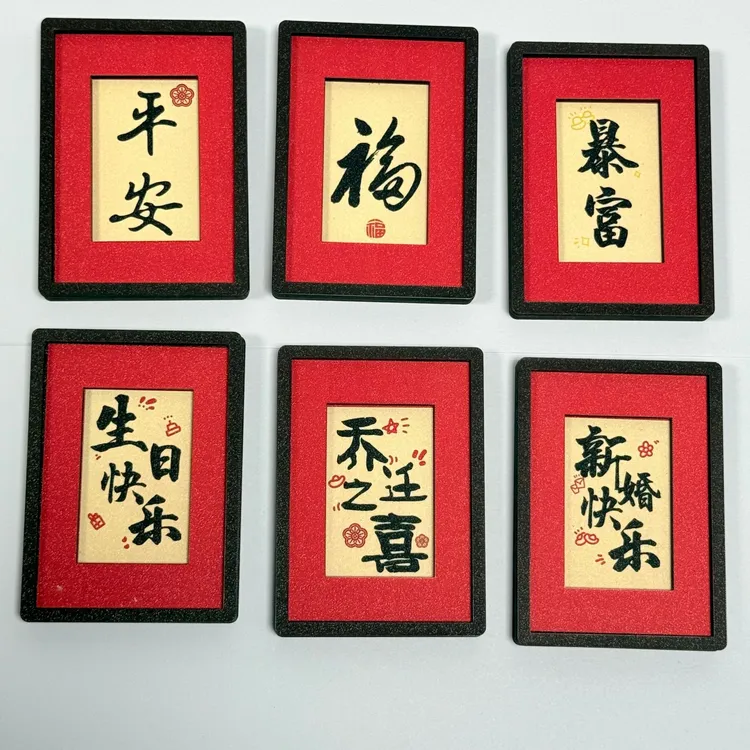 平安
福
福
暴富
生日快乐
乔迁之喜
新婚快乐